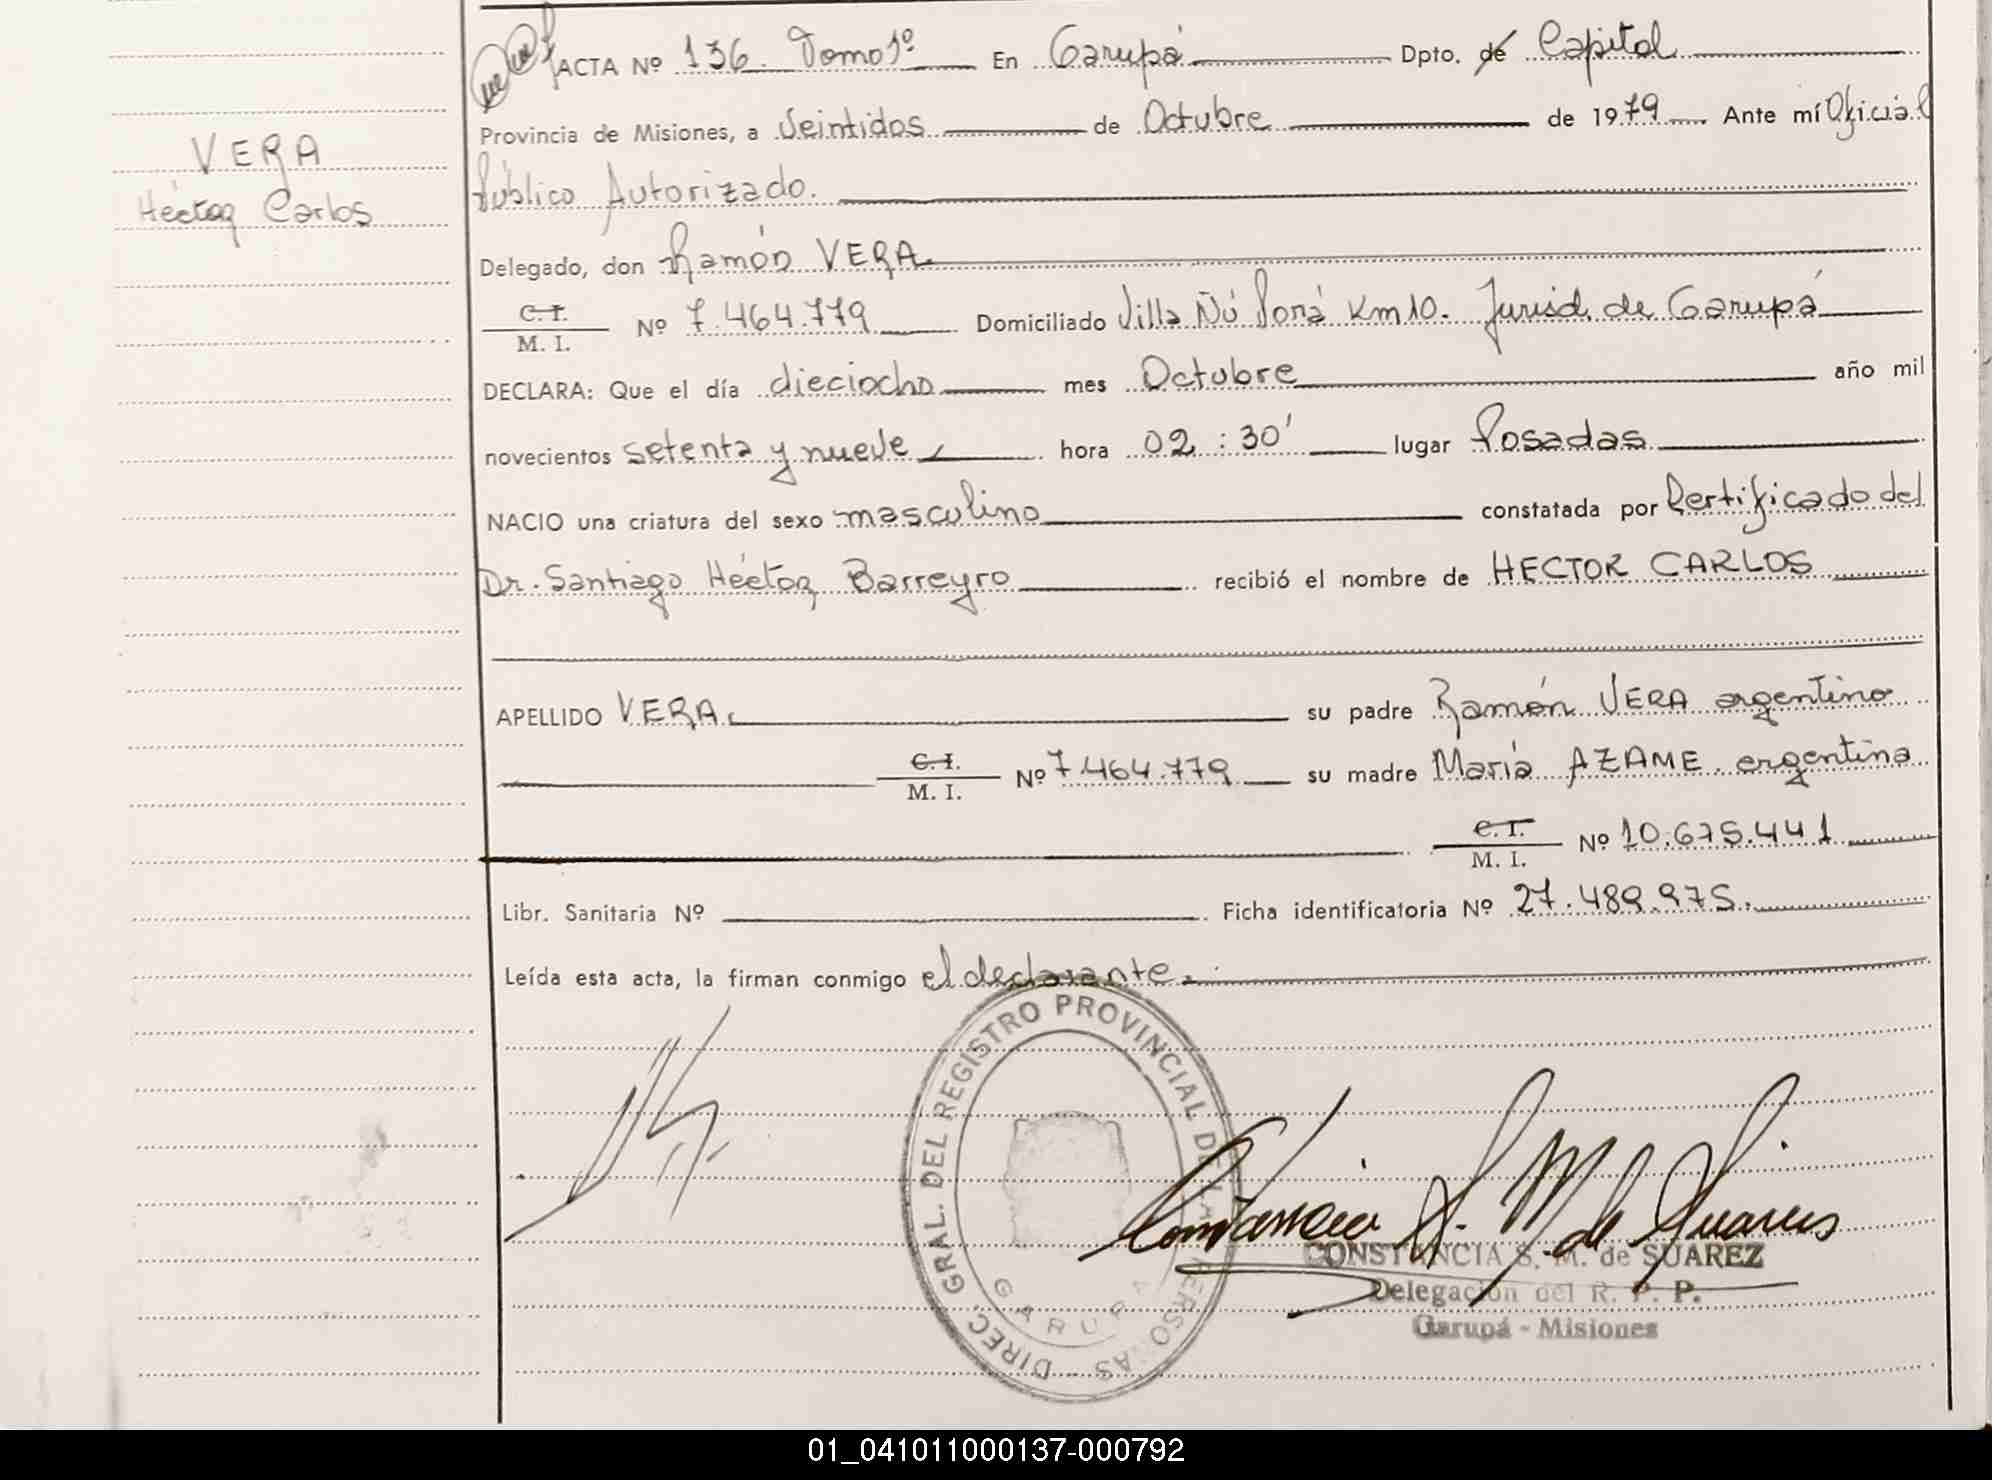 ACTA Nº 136. Tomo 1º En Garupá Dpto. de Capital
Provincia de Misiones, a Veintidos de Octubre de 1979 Ante mí Oficial
Público Autorizado.
VERA
Héctor Carlos
Delegado, don Ramón VERA.
C.I.
M. I. Nº 7.464.779 Domiciliado Villa Ñú Porá Km 10. Jurisd. de Garupá
DECLARA: Que el día dieciocho mes Octubre año mil
novecientos setenta y nueve hora 02:30' lugar Posadas
NACIO una criatura del sexo masculino constatada por Certificado del
Dr. Santiago Héctor Barreyro recibió el nombre de HECTOR CARLOS
APELLIDO VERA. su padre Ramón VERA argentino
C.I.
M. I. Nº 7.464.779 su madre María AZAME. argentina
C.I.
M. I. Nº 10.675.441
Libr. Sanitaria Nº Ficha identificatoria Nº 27.489.975.
Leída esta acta, la firman conmigo el declarante.
DIREC. GRAL. DEL REGISTRO PROVINCIAL DE LAS PERSONAS -
GARUPA
Constancia S. M. de Suarez
CONSTANCIA S. M. de SUAREZ
Delegación del R. P. P.
Garupá - Misiones
01_041011000137-000792